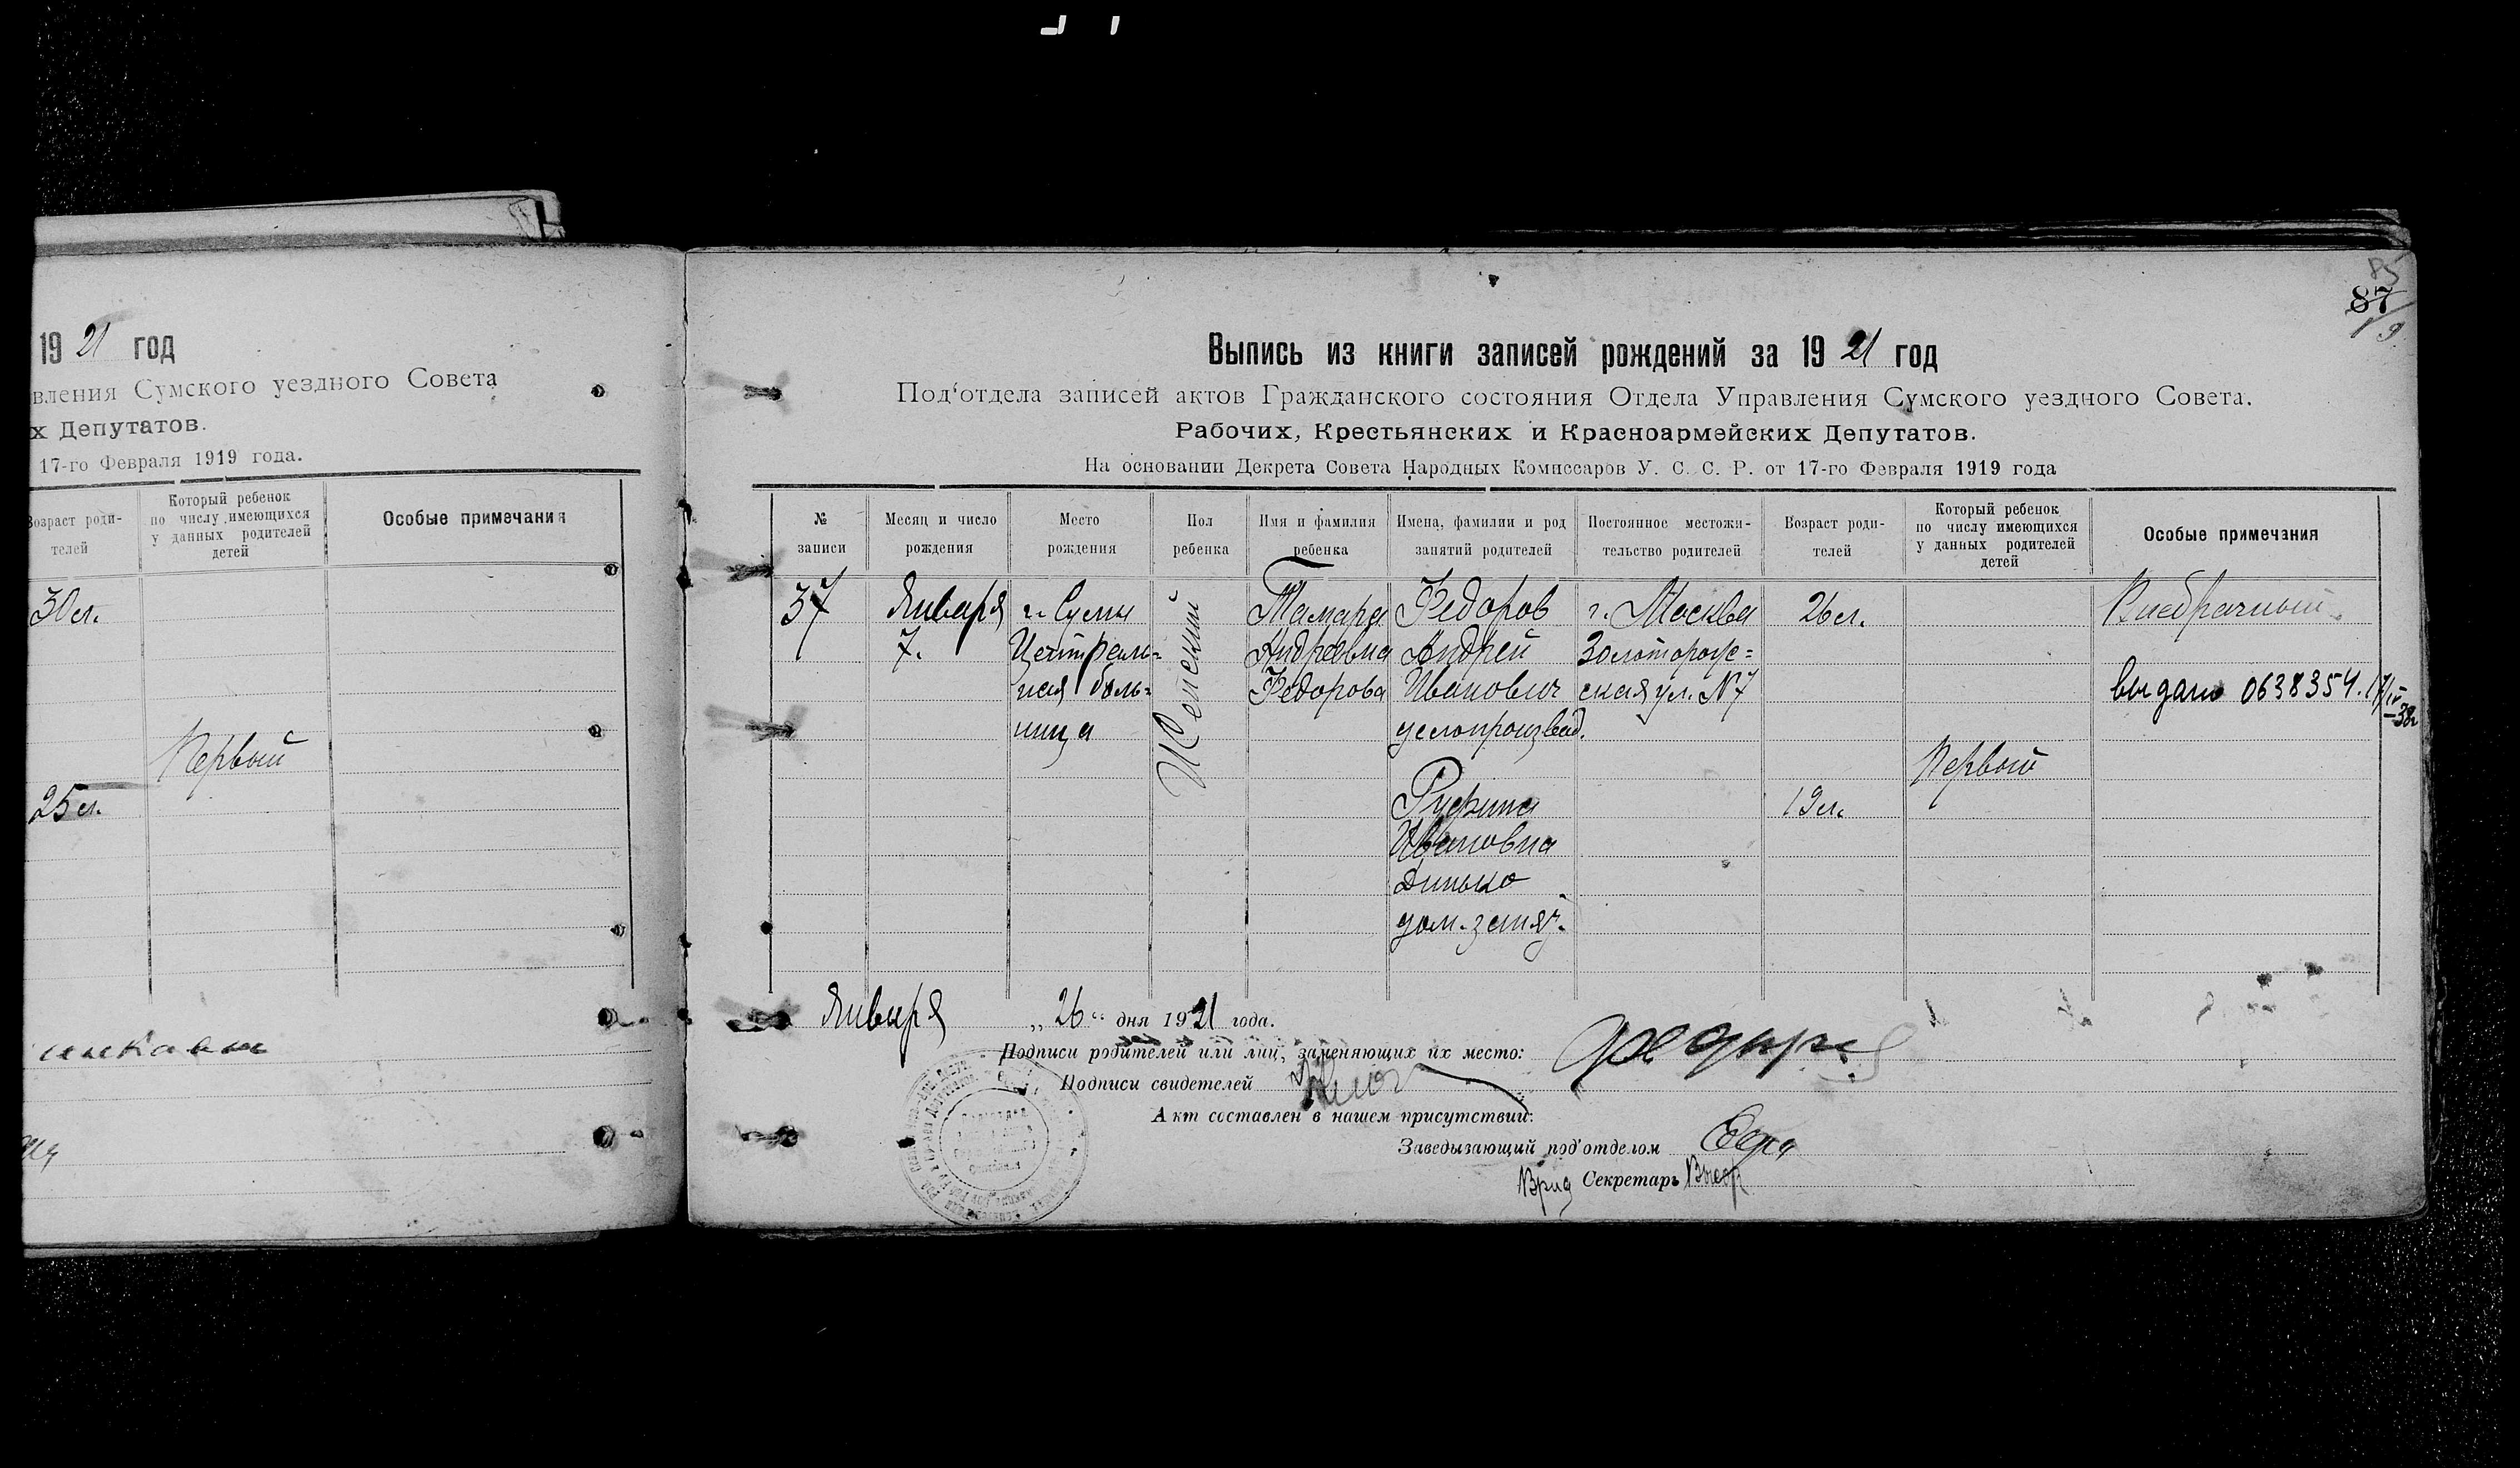 1921 год
вления Сумского уездного Совета
х Депутатов.
17-го Февраля 1919 года.
Возраст роди-
телей
Который ребенок
по числу имеющихся
у данных родителей
детей
Особые примечания
30 л.
Первый
25 л.
85
87
Выпись из книги записей рождений за 1921 год
Под'отдела записей актов Гражданского состояния Отдела Управления Сумского уездного Совета.
Рабочих, Крестьянских и Красноармейских Депутатов.
На основании Декрета Совета Народных Комиссаров У. С. С. Р. от 17-го Февраля 1919 года
№
записи
Месяц и число
рождения
Место
рождения
Пол
ребенка
Имя и фамилия
ребенка
Имена, фамилии и род
занятий родителей
Постоянное местожи-
тельство родителей
Возраст роди-
телей
Который ребенок
по числу имеющихся
у данных родителей
детей
Особые примечания
37
Января
7.
г. Сумы
Централь=
ная боль=
ница
Женский
Тамара
Андреевна
Федорова
Федоров
Андрей
Иванович
делопроизвод.
Руфина
Ивановна
Динько
дом. занят.
г. Москва
Золоторож=
ская ул. №7
26 л.
19 л.
Первый
Внебрачный
выдано 0638354. 17/IV
-38г
Января „26“ дня 1921 года.
Подписи родителей или лиц, заменяющих их место:
Подписи свидетелей
Акт составлен в нашем присутствии:
Заведывающий под'отделом
Врид Секретарь